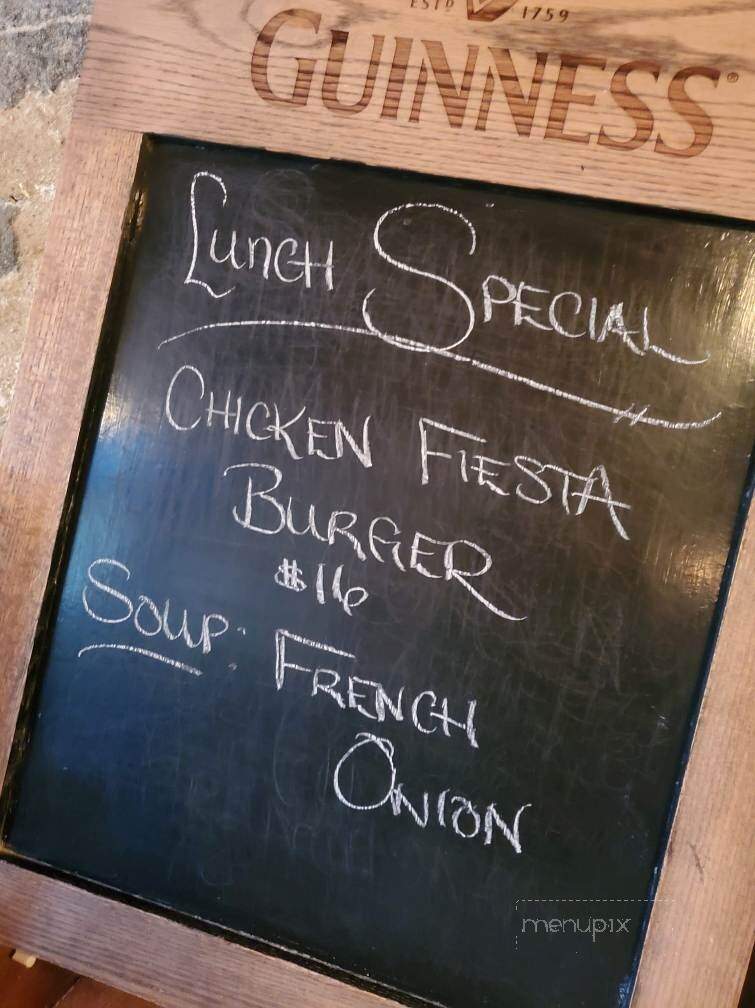 ESTD 1759
GUINNESS®
LUNCH SPECIAL
CHICKEN FIESTA
BURGER
$16
SOUP: FRENCH
ONION
menupix